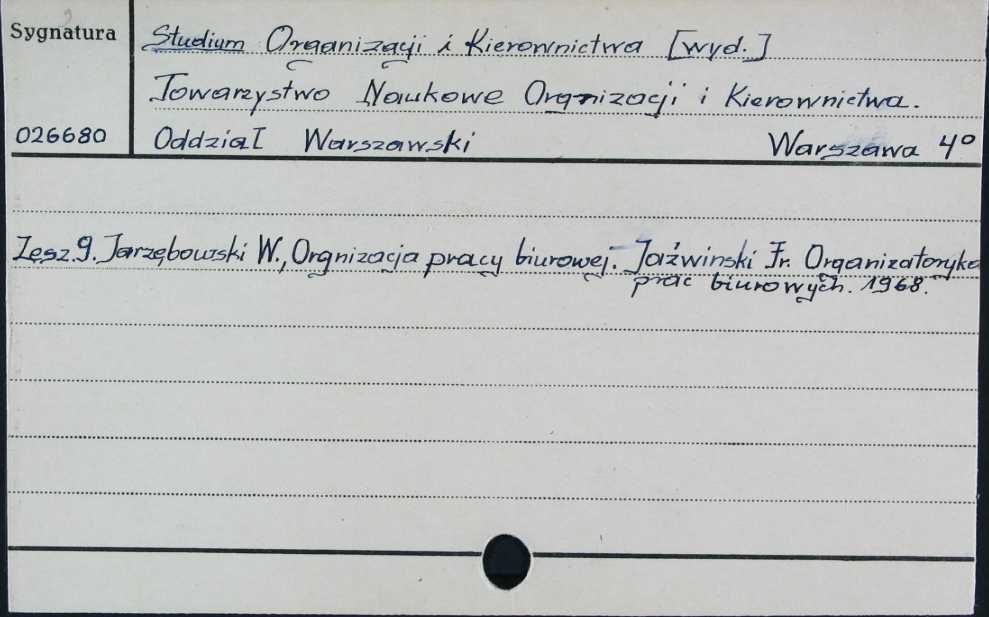 Sygnatura
Studium Organizacji i Kierownictwa [wyd.]
Towarzystwo Naukowe Orgnizacji i Kierownictwa.
026680 Oddział Warszawski Warszawa 4°
Zesz. 9. Jarzębowski W., Orgnizacja pracy biurowej. Jaźwinski Fr. Organizatoryka
prac biurowych. 1968.